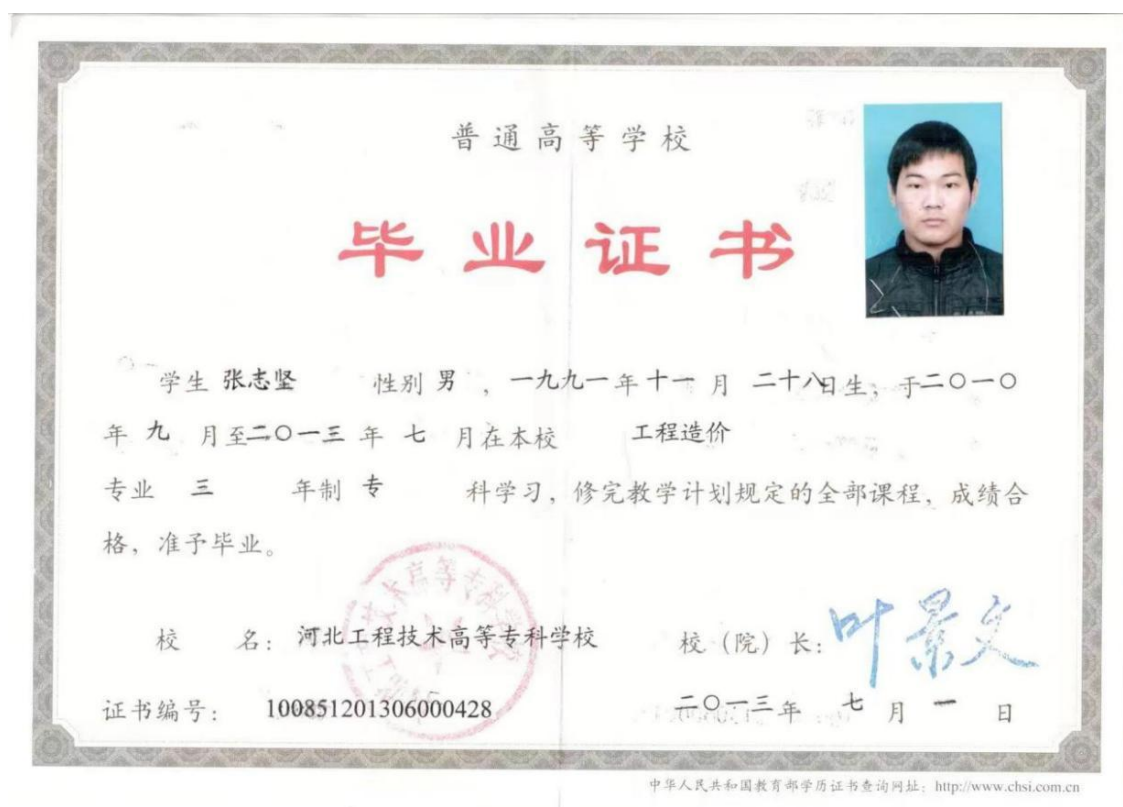 普通高等学校
毕业证书
学生 张志坚 性别 男 ，一九九一年十一月 二十八日生，于二〇一〇
年 九 月至二〇一三 年 七 月在本校 工程造价
专业 三 年制 专 科学习，修完教学计划规定的全部课程，成绩合
格，准予毕业。
校 名：河北工程技术高等专科学校 校（院）长：叶景文
证书编号： 100851201306000428 二〇一三年 七 月 一 日
中华人民共和国教育部学历证书查询网址：http://www.chsi.com.cn